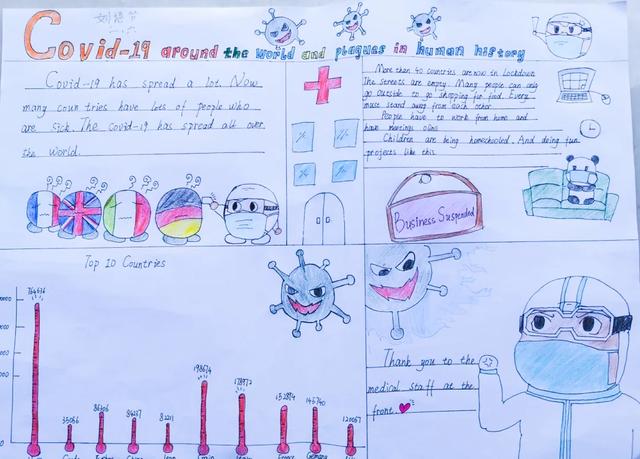 Covid-19 around the world and plagues in human history
Covid-19 has spread a lot. Now
many countries have lots of people who
are sick. The covid-19 has spread all over
the world.
More than 40 countries are now in lockdown.
The streets are empty. Many people can only
go outside to go shopping for food. Every
must stand away from each other.
People have to work from home and
have meetings
Children are being homeschooled. And doing fun
projects like this.
Business Suspended
Top 10 Countries
764636
35056
86306
84237
82211
198674
178972
152894
145740
120067
Thank you to the
medical staff at the
front.